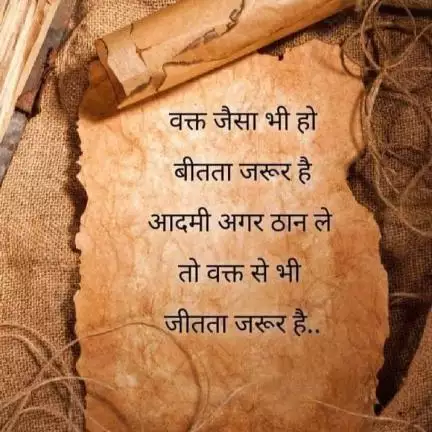 वक्त जैसा भी हो
बीतता जरूर है
आदमी अगर ठान ले
तो वक्त से भी
जीतता जरूर है..